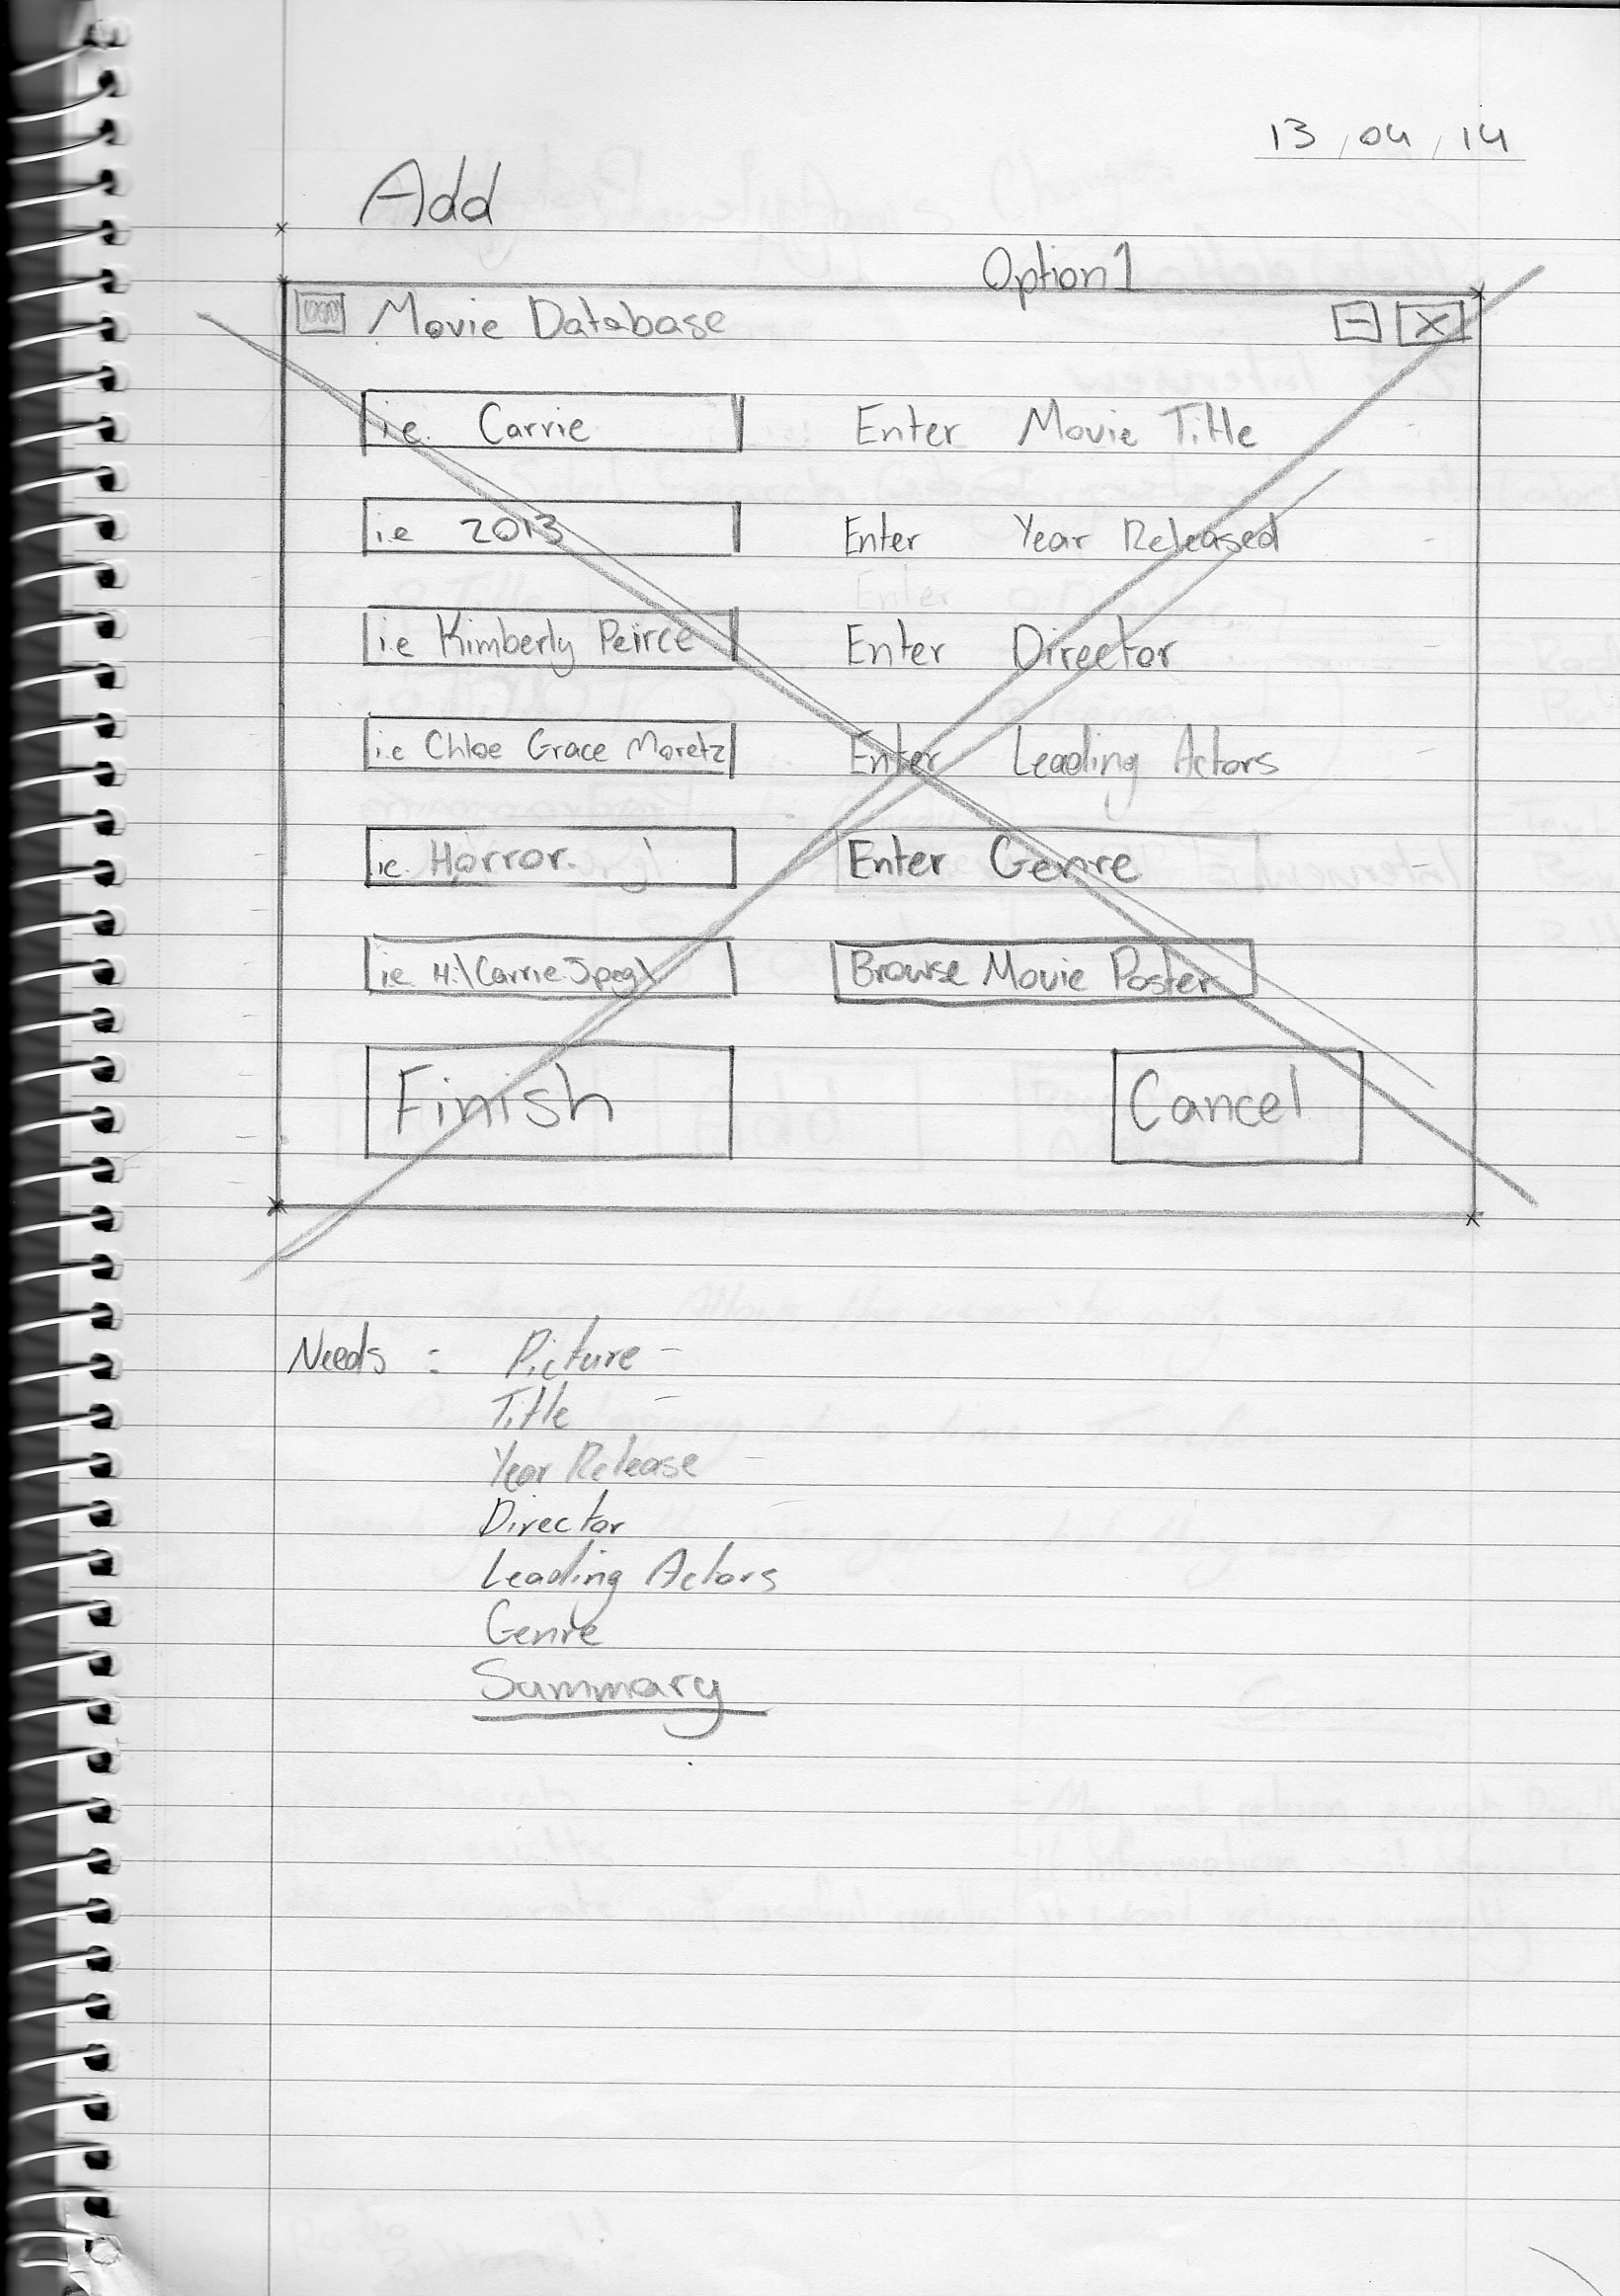 13/04/14
Add
Option 1
Movie Database - X
i.e. Carrie Enter Movie Title
i.e 2013 Enter Year Released
Enter
i.e Kimberly Peirce Enter Director
i.e Chloe Grace Moretz Enter Leading Actors
ie. Horror. Enter Genre
ie. H:\Carrie.Jpeg\ Browse Movie Poster
Finish Cancel
Needs : Picture -
Title -
Year Release -
Director
Leading Actors
Genre
Summary